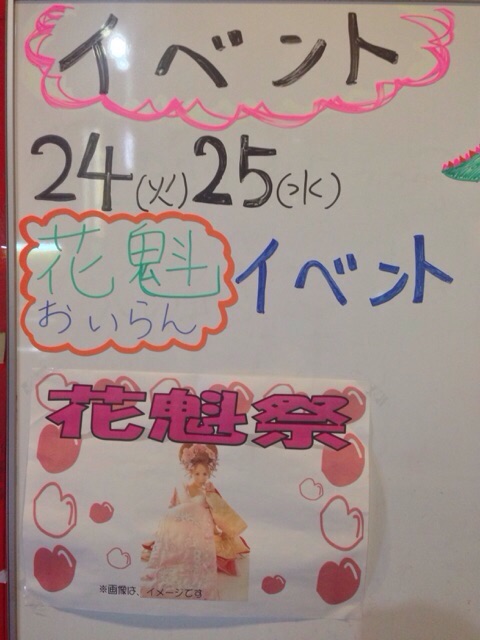 イベント
24(火)25(水)
花魁イベント
おいらん
花魁祭
※画像は、イメージです